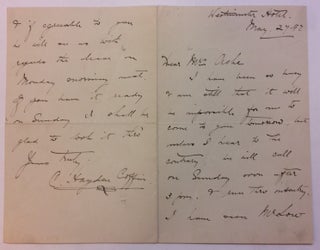 Westminster Hotel.
May 27.97
Dear Mrs Ashe
I have been so busy
& am still that it will
be impossible for me to
come to you tomorrow but
unless I hear to the
contrary, we will call
on Sunday soon after
3 p.m. & run thro
I have seen Mr Low
& if agreeable to you
he will see us with
regards the lease on
Monday morning next.
if you have it ready
on Sunday I shall be
glad to look it thro'
Yours truly,
C. Hayden Coffin